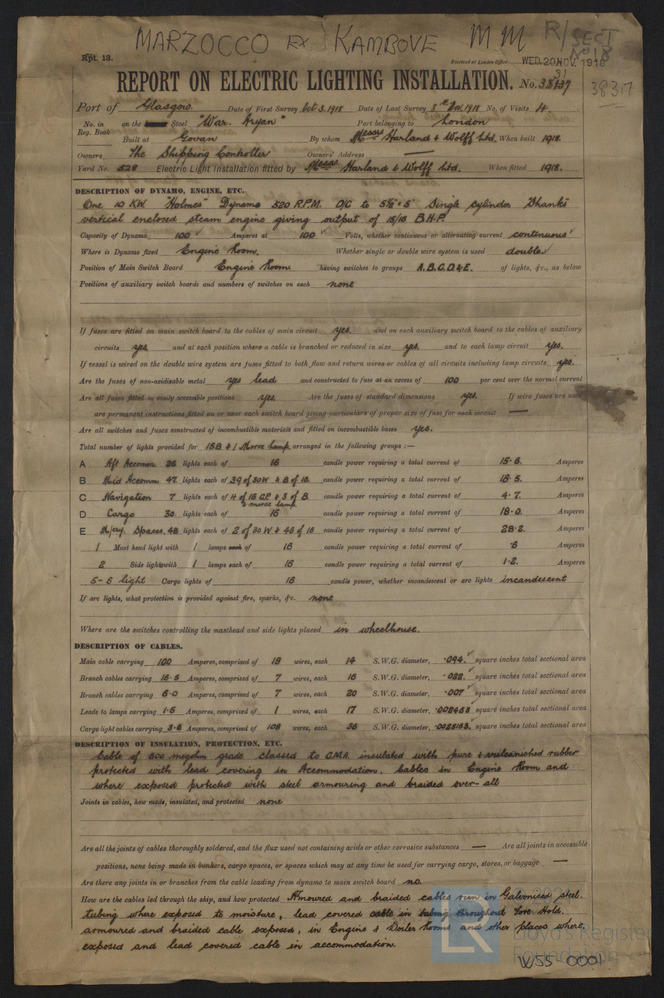 MARZOCCO EX KAMBOVE MM R/SECT
No 18
Rpt. 13.
Received at London Office WED. 20 NOV. 1918
REPORT ON ELECTRIC LIGHTING INSTALLATION. No.
38317
Port of Glasgow Date of First Survey Oct 3. 1918 Date of Last Survey 1918 No. of Visits 4.
No. in Reg. Book on the Steel "War. Aryan" Port belonging to London
Built at Govan By whom Messrs Harland & Wolff Ltd. When built 1918.
Owners The Shipping Controller Owners' Address —
Yard No. 529 Electric Light Installation fitted by Messrs Harland & Wolff Ltd. When fitted 1918.
DESCRIPTION OF DYNAMO, ENGINE, ETC.
One 10 KW "Holmes" Dynamo 520 R.P.M. O/C to 5½ × 5" Single cylinder Shanks
vertical enclosed steam engine giving output of 15/18 B.H.P.
Capacity of Dynamo 100 Amperes at 100 Volts, whether continuous or alternating current continuous
Where is Dynamo fixed Engine Room. Whether single or double wire system is used double.
Position of Main Switch Board Engine Room having switches to groups A.B.C.D.&E. of lights, &c., as below
Positions of auxiliary switch boards and numbers of switches on each none
If fuses are fitted on main switch board to the cables of main circuit yes. and on each auxiliary switch board to the cables of auxiliary
circuits yes and at each position where a cable is branched or reduced in size yes. and to each lamp circuit yes.
If vessel is wired on the double wire system are fuses fitted to both flow and return wires or cables of all circuits including lamp circuits yes.
Are the fuses of non-oxidisable metal yes lead and constructed to fuse at an excess of 100 per cent over the normal current
Are all fuses fitted in easily accessible positions yes. Are the fuses of standard dimensions yes. If wire fuses are used
are permanent instructions fitted on or near each switch board giving particulars of proper size of fuse for each circuit —
Are all switches and fuses constructed of incombustible materials and fitted on incombustible bases yes.
Total number of lights provided for 158 & 1 Morse Lamp arranged in the following groups :—
A Aft Accomm 26 lights each of 16 candle power requiring a total current of 15.6. Amperes
B Mid Accomm 47 lights each of 39 of 30W & 8 of 16 candle power requiring a total current of 18.5. Amperes
C Navigation 7 lights each of 4 of 16 CP & 3 of 8 candle power requiring a total current of 4.7. Amperes
& morse lamp
D Cargo 30 lights each of 16 candle power requiring a total current of 18.0. Amperes
E M/cry. Spaces. 48 lights each of 2 of 30 W & 46 of 16 candle power requiring a total current of 28.2. Amperes
1 Mast head light with 1 lamps each of 16 candle power requiring a total current of .6 Amperes
2 Side light with 1 lamps each of 16 candle power requiring a total current of 1.2. Amperes
5-6 light Cargo lights of 16 candle power, whether incandescent or arc lights incandescent
If arc lights, what protection is provided against fire, sparks, &c. none
Where are the switches controlling the masthead and side lights placed in wheelhouse.
DESCRIPTION OF CABLES.
Main cable carrying 100 Amperes, comprised of 19 wires, each 14 S.W.G. diameter, .094. square inches total sectional area
Branch cables carrying 18.5 Amperes, comprised of 7 wires, each 16 S.W.G. diameter, .022. square inches total sectional area
Branch cables carrying 6.0 Amperes, comprised of 7 wires, each 20 S.W.G. diameter, .007 square inches total sectional area
Leads to lamps carrying 1.5 Amperes, comprised of 1 wires, each 17 S.W.G. diameter, .002463 square inches total sectional area
Cargo light cables carrying 3.6 Amperes, comprised of 108 wires, each 36 S.W.G. diameter, square inches total sectional area
DESCRIPTION OF INSULATION, PROTECTION, ETC.
Cable of 600 megohm grade classed to C.M.A. insulated with pure & vulcanished rubber
protected with lead covering in Accommodation. Cables in Engine Room and
where exposed protected with steel armouring and braided over-all
Joints in cables, how made, insulated, and protected none
Are all the joints of cables thoroughly soldered, and the flux used not containing acids or other corrosive substances — Are all joints in accessible
positions, none being made in bunkers, cargo spaces, or spaces which may at any time be used for carrying cargo, stores, or baggage —
Are there any joints in or branches from the cable leading from dynamo to main switch board no.
How are the cables led through the ship, and how protected Amoured and braided cables run in Galvanised steel
tubing where exposed to moisture, lead covered cable in tubing throughout Hold.
armoured and braided cable exposed, in Engine & Boiler Rooms and other places where,
exposed and lead covered cable in accommodation.
LR
Lloyd's Register
Foundation
W55-0001